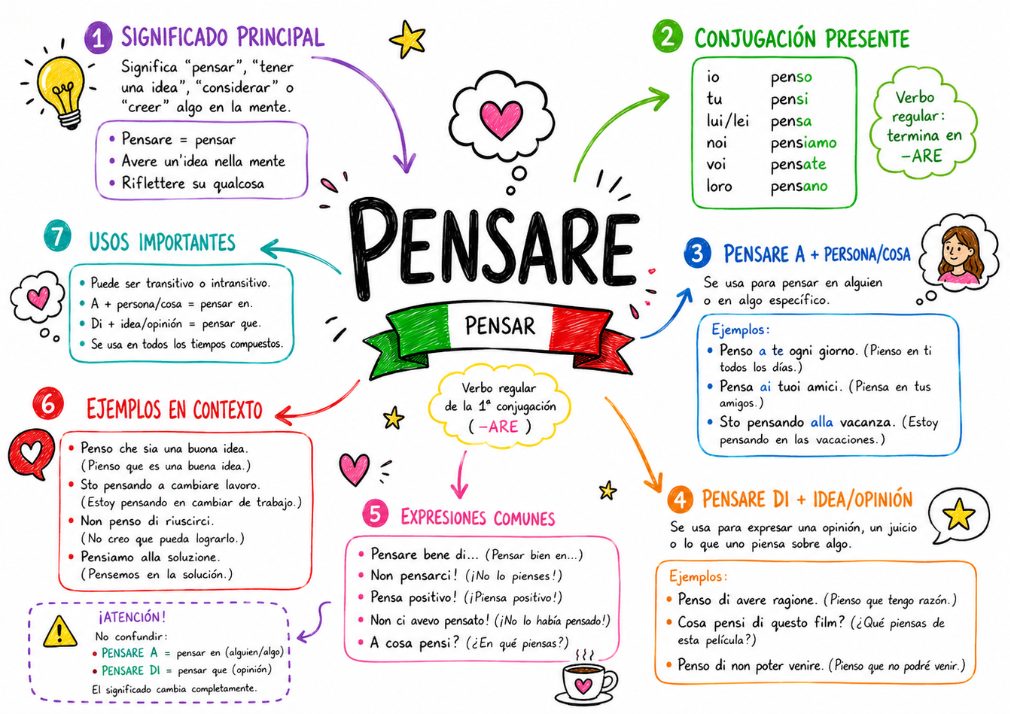 PENSARE
PENSAR
Verbo regular
de la 1ª conjugación
( –ARE )
1 SIGNIFICADO PRINCIPAL
Significa “pensar”, “tener
una idea”, “considerar” o
“creer” algo en la mente.
• Pensare = pensar
• Avere un'idea nella mente
• Riflettere su qualcosa
2 CONJUGACIÓN PRESENTE
io penso
tu pensi
lui/lei pensa
noi pensiamo
voi pensate
loro pensano
Verbo
regular:
termina en
–ARE
3 PENSARE A + PERSONA/COSA
Se usa para pensar en alguien
o en algo específico.
Ejemplos:
• Penso a te ogni giorno. (Pienso en ti
todos los días.)
• Pensa ai tuoi amici. (Piensa en tus
amigos.)
• Sto pensando alla vacanza. (Estoy
pensando en las vacaciones.)
4 PENSARE DI + IDEA/OPINIÓN
Se usa para expresar una opinión, un juicio
o lo que uno piensa sobre algo.
Ejemplos:
• Penso di avere ragione. (Pienso que tengo razón.)
• Cosa pensi di questo film? (¿Qué piensas de
esta película?)
• Penso di non poter venire. (Pienso que no podré venir.)
5 EXPRESIONES COMUNES
• Pensare bene di... (Pensar bien en...)
• Non pensarci! (¡No lo pienses!)
• Pensa positivo! (¡Piensa positivo!)
• Non ci avevo pensato! (¡No lo había pensado!)
• A cosa pensi? (¿En qué piensas?)
6 EJEMPLOS EN CONTEXTO
• Penso che sia una buona idea.
(Pienso que es una buena idea.)
• Sto pensando a cambiare lavoro.
(Estoy pensando en cambiar de trabajo.)
• Non penso di riuscirci.
(No creo que pueda lograrlo.)
• Pensiamo alla soluzione.
(Pensemos en la solución.)
¡ATENCIÓN!
No confundir:
• PENSARE A = pensar en (alguien/algo)
• PENSARE DI = pensar que (opinión)
El significado cambia completamente.
7 USOS IMPORTANTES
• Puede ser transitivo o intransitivo.
• A + persona/cosa = pensar en.
• Di + idea/opinión = pensar que.
• Se usa en todos los tiempos compuestos.